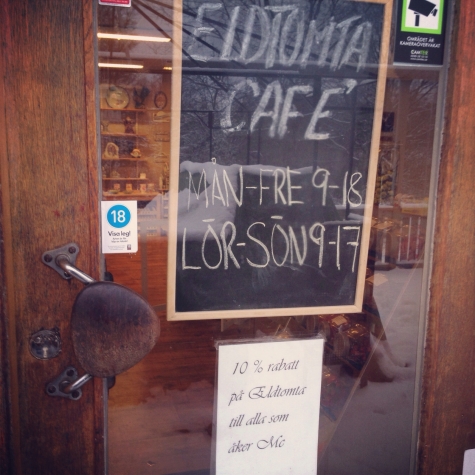 ELDTOMTA
CAFÉ
MÅN-FRE 9-18
LÖR-SÖN 9-17
OMRÅDET ÄR
KAMERAÖVERVAKAT
18
Visa leg!
10 % rabatt
på Eldtomta
till alla som
åker Mc